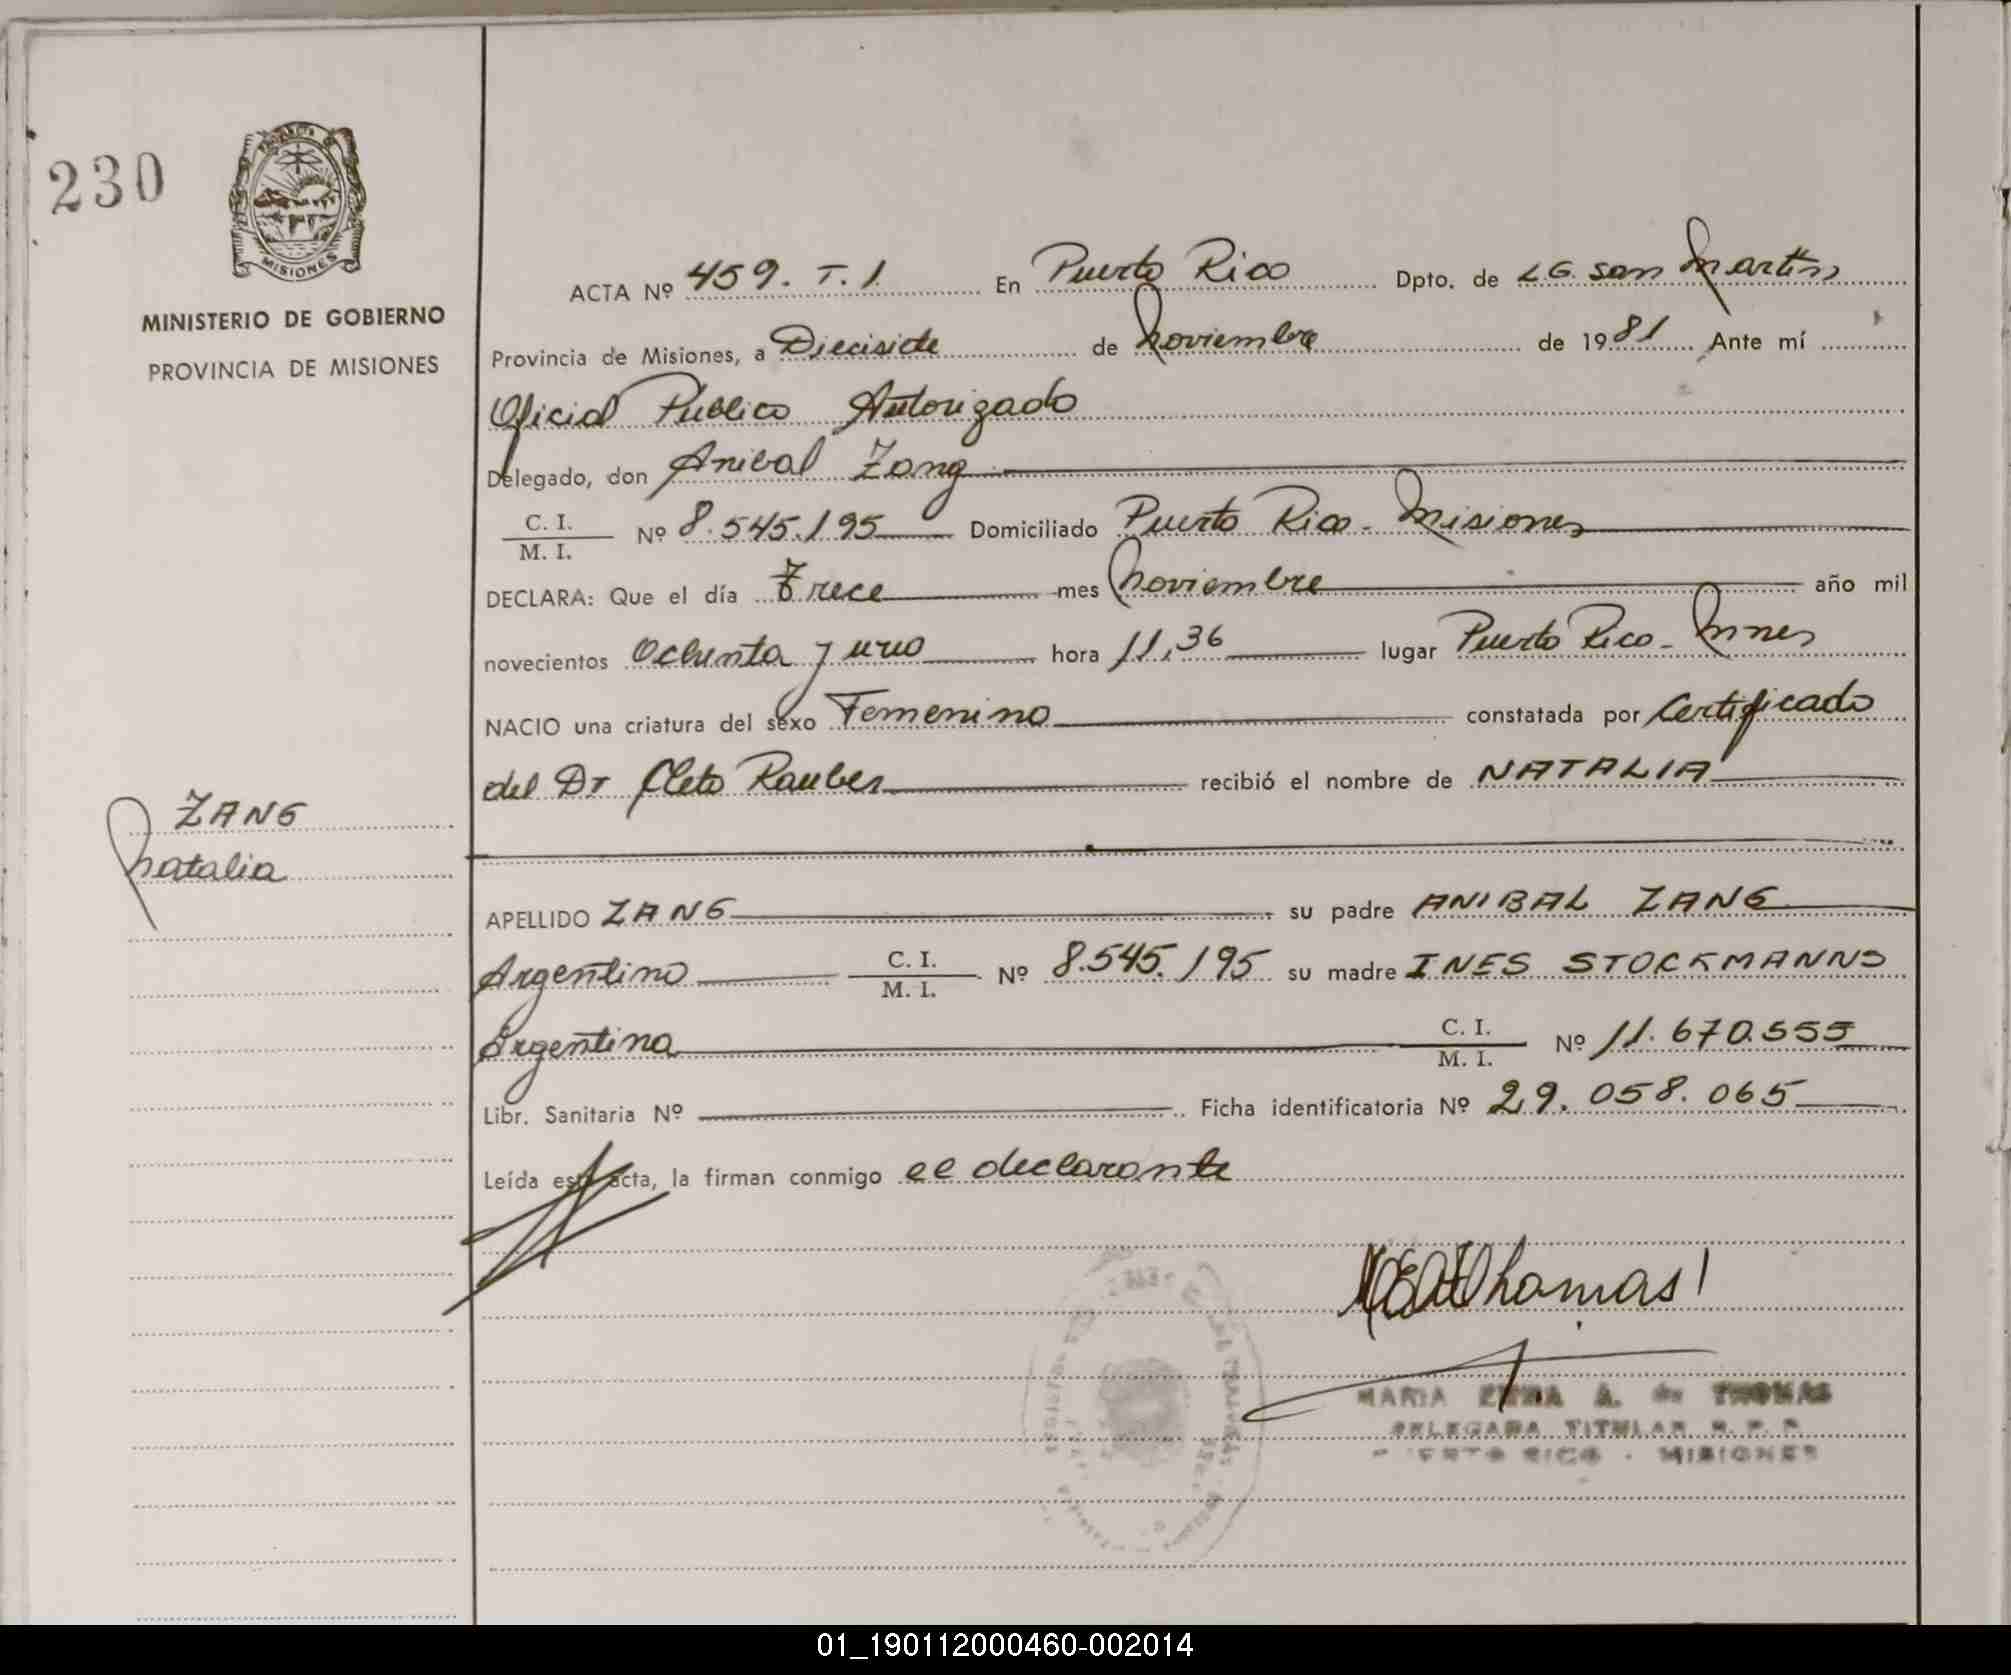 230
MISIONES
MINISTERIO DE GOBIERNO
PROVINCIA DE MISIONES
ZANG
Natalia
ACTA Nº 459. T. 1. En Puerto Rico Dpto. de L.G. San Martin
Provincia de Misiones, a Diecisiete de Noviembre de 1981 Ante mí
Oficial Publico Autorizado
Delegado, don Anibal Zang
C. I. / M. I. Nº 8.545.195 Domiciliado Puerto Rico - Misiones
DECLARA: Que el día Trece mes Noviembre año mil
novecientos Ochenta y uno hora 11,36 lugar Puerto Rico - Mnes
NACIO una criatura del sexo Femenino constatada por Certificado
del Dr Cleto Rauber recibió el nombre de NATALIA
APELLIDO ZANG su padre ANIBAL ZANG
Argentino C. I. / M. I. Nº 8.545.195 su madre INES STOCKMANNS
Argentina C. I. / M. I. Nº 11.670.555
Libr. Sanitaria Nº Ficha identificatoria Nº 29.058.065
Leída esta acta, la firman conmigo el declarante
Thomas
MARIA A. de THOMAS
DELEGADA TITULAR R. P. P.
PUERTO RICO - MISIONES
01_190112000460-002014